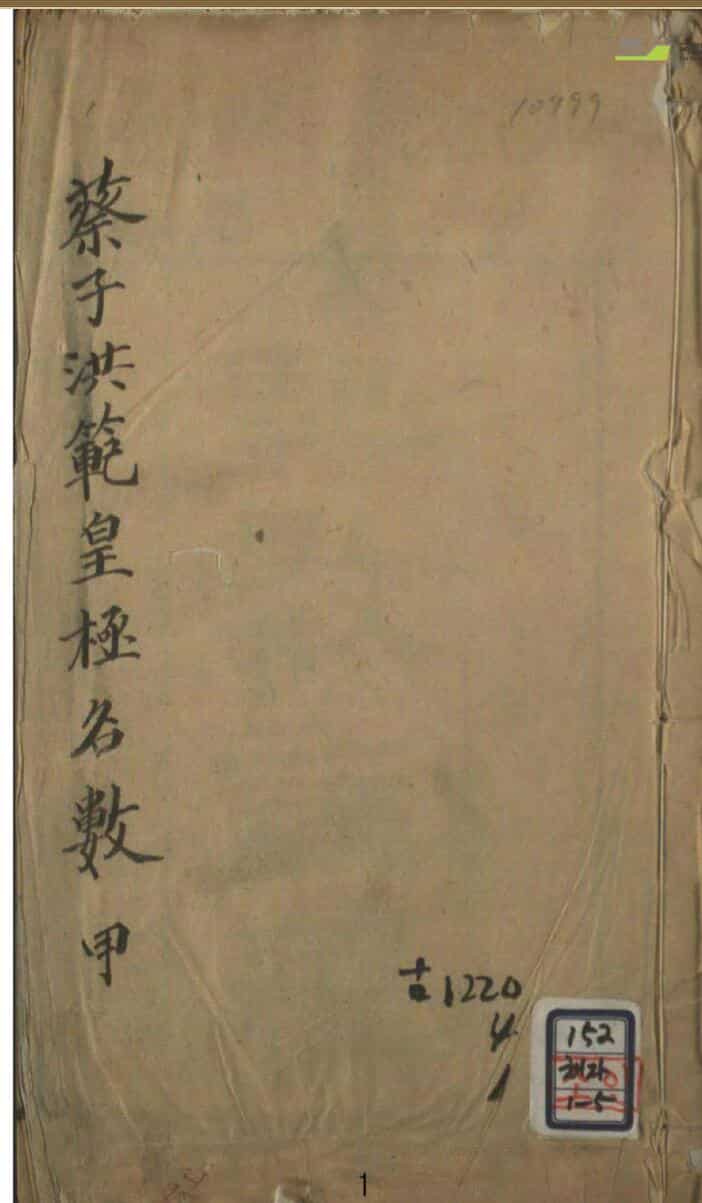 10999
蔡子洪範皇極名數 甲
古1220
4
1
152
채자
1-5
1